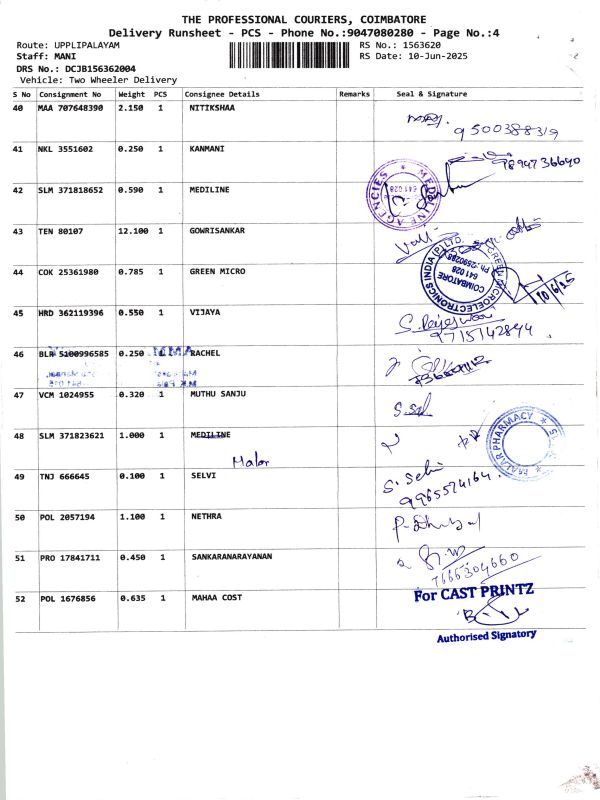 THE PROFESSIONAL COURIERS, COIMBATORE
Delivery Runsheet - PCS - Phone No.:9047080280 - Page No.:4
Route: UPPLIPALAYAM RS No.: 1563620
Staff: MANI RS Date: 10-Jun-2025
DRS No.: DCJB156362004
Vehicle: Two Wheeler Delivery
S No Consignment No Weight PCS Consignee Details Remarks Seal & Signature
40 MAA 707648390 2.150 1 NITIKSHAA
9500388319
41 NKL 3551602 0.250 1 KANMANI
9894736640
42 SLM 371818652 0.590 1 MEDILINE
MEDILINE AGENCIES
641 028
43 TEN 80107 12.100 1 GOWRISANKAR
Valli
44 COK 25361980 0.785 1 GREEN MICRO
GREEN MICROELECTRONICS INDIA (P) LTD.
COIMBATORE
641 028
Ph:2590288
10/6/25
45 HRD 362119396 0.550 1 VIJAYA
S. Rajeswari
9715142844
46 BLR 5100996585 0.250 1 RACHEL
47 VCM 1024955 0.320 1 MUTHU SANJU
48 SLM 371823621 1.000 1 MEDILINE
Malar
MALAR PHARMACY
49 TNJ 666645 0.100 1 SELVI
S. Selvi
9965574164
50 POL 2057194 1.100 1 NETHRA
51 PRO 17841711 0.450 1 SANKARANARAYANAN
7665304660
52 POL 1676856 0.635 1 MAHAA COST
For CAST PRINTZ
Authorised Signatory